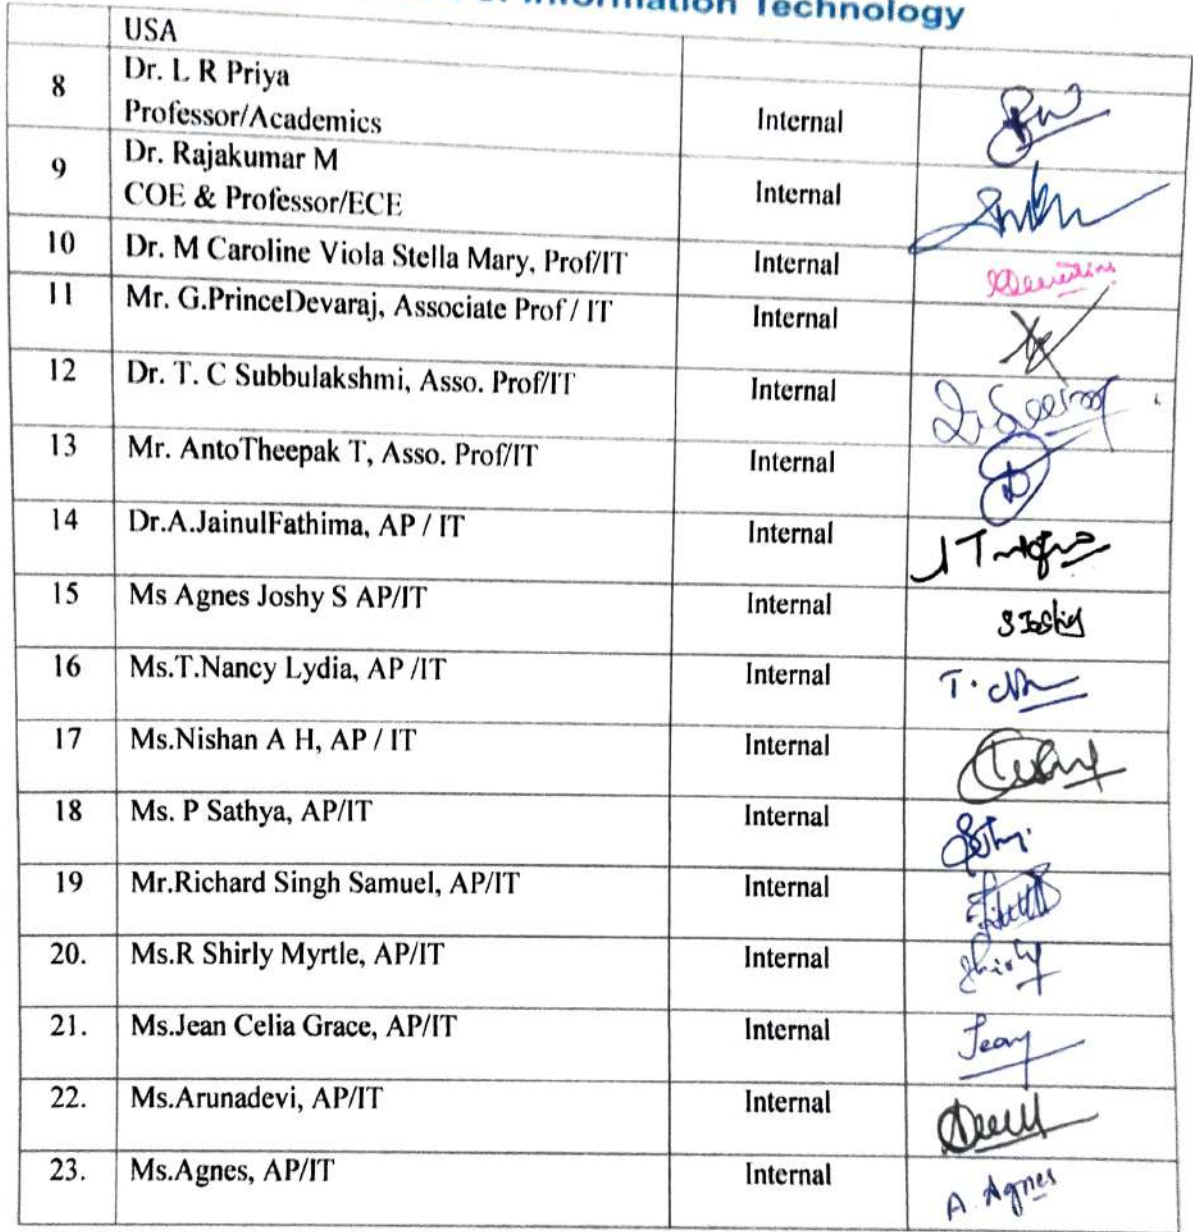 Information Technology
USA
8 Dr. L R Priya
Professor/Academics Internal
9 Dr. Rajakumar M
COE & Professor/ECE Internal
10 Dr. M Caroline Viola Stella Mary, Prof/IT Internal
11 Mr. G.PrinceDevaraj, Associate Prof / IT Internal
12 Dr. T. C Subbulakshmi, Asso. Prof/IT Internal
13 Mr. AntoTheepak T, Asso. Prof/IT Internal
14 Dr.A.JainulFathima, AP / IT Internal
15 Ms Agnes Joshy S AP/IT Internal
16 Ms.T.Nancy Lydia, AP /IT Internal
17 Ms.Nishan A H, AP / IT Internal
18 Ms. P Sathya, AP/IT Internal
19 Mr.Richard Singh Samuel, AP/IT Internal
20. Ms.R Shirly Myrtle, AP/IT Internal
21. Ms.Jean Celia Grace, AP/IT Internal
22. Ms.Arunadevi, AP/IT Internal
23. Ms.Agnes, AP/IT Internal A. Agnes